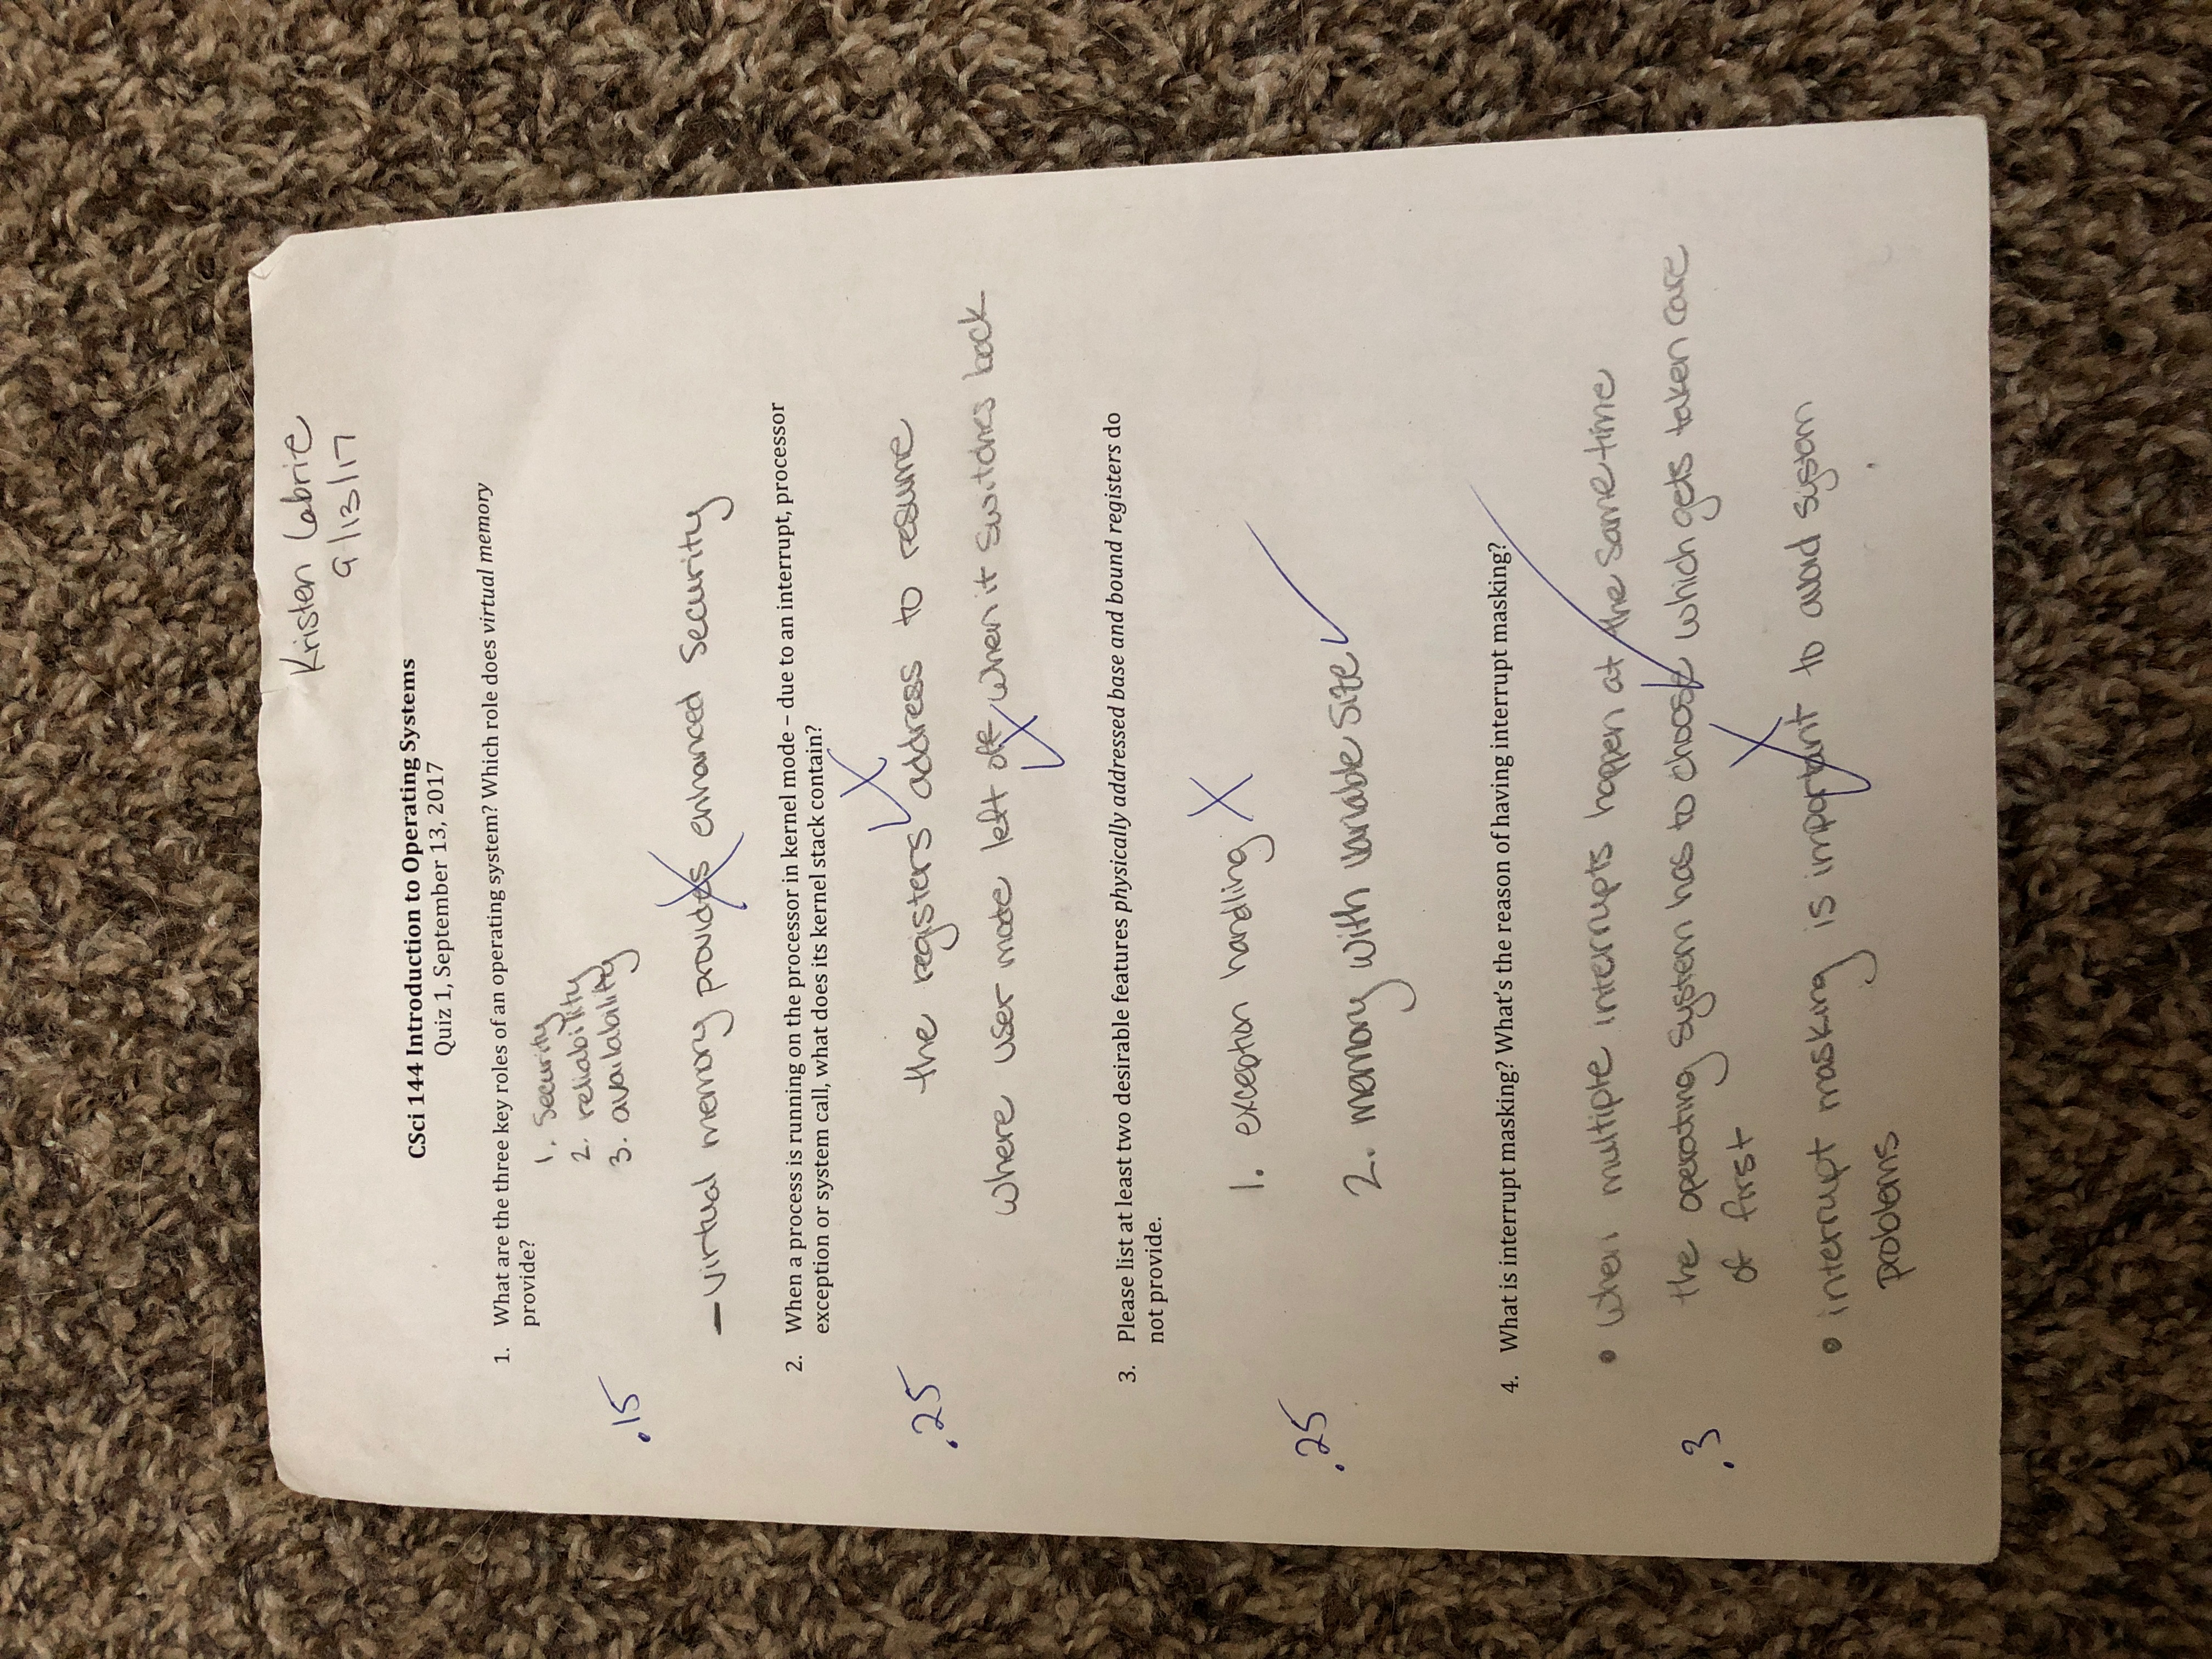 Kristen Labrie
9/13/17
CSci 144 Introduction to Operating Systems
Quiz 1, September 13, 2017
1. What are the three key roles of an operating system? Which role does virtual memory
provide?
1. Security
2. reliability
3. availability
.15
– virtual memory provides enhanced security
2. When a process is running on the processor in kernel mode – due to an interrupt, processor
exception or system call, what does its kernel stack contain?
.25
the registers address to resume
where user mode left off when it switches back
3. Please list at least two desirable features physically addressed base and bound registers do
not provide.
1. exception handling
.25
2. memory with variable size
4. What is interrupt masking? What's the reason of having interrupt masking?
• when multiple interrupts happen at the same time
the operating system has to choose which gets taken care
.3
of first
• interrupt masking is important to avoid system
problems